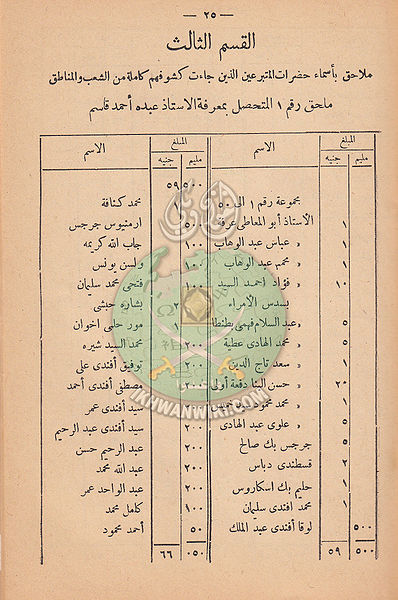 — ٢٥ —
القسم الثالث
ملاحق بأسماء حضرات المتبرعين الذين جاءت كشوفهم كاملة من الشعب والمناطق
ملحق رقم ١ المتحصل بمعرفة الاستاذ عبده أحمد قاسم
المبلغ
الاسم
مليم جنيه
مجموعة رقم ١ الى ٥٠
١ الأستاذ أبو المعاطى عرفة
١ » عباس عبد الوهاب
١ » محمد عبد الوهاب
١٠ » فؤاد احمد السيد
بسدس الأمراء
٥ » عبد السلام فهمى بطنطا
٥ » محمد الهادى عطية
١ » سعد تاج الدين
٢٠ » حسن البنا دفعة أولى
١ » محمود
٥ » علوى عبد الهادى
٥ جرجس بك صالح
٢ قسطندى دباس
١ حليم بك اسكاروس
١ محمد افندى سليمان
٥٠٠ لوقا أفندى عبد الملك
٥٠٠ ٥٩
المبلغ
الاسم
مليم جنيه
٥٠٠ ٥٩
١ محمد كنافة
٥٠٠ ارمنيوس جرجس
١٠٠ جاب الله كريمه
١٠٠ ولسن يونس
١٠٠ فتحى محمد سليمان
٢ بشاره حبشى
١ مور حلمى اخوان
٢٠٠ محمد السيد شيره
١٠٠ توفيق أفندى على
٢٠٠ مصطفى أفندى أحمد
سيد أفندى عمر
٢٠٠ سيد أفندى عبد الرحيم
٢٠٠ عبد الرحيم حسن
٢٠٠ عبد الله محمد
٢٠٠ عبد الواحد عمر
١٠٠ كامل محمد
٥٠ أحمد محمود
٠٥٠ ٦٦
IKHWANWIKI.COM